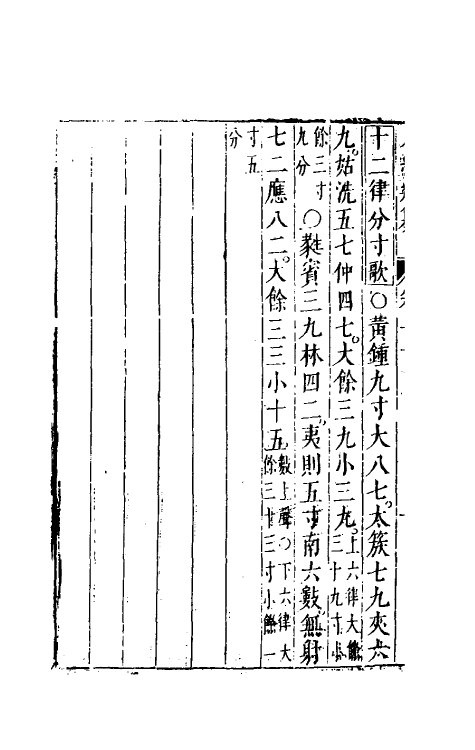 十二律分寸歌〇黃鍾九寸大八七太簇七九夾六
九姑洗五七仲四七大餘三九小三九上六律大餘三十九寸小
餘三寸九分〇蕤賓三九林四二夷則五寸南六數無射
七二應八二大餘三三小十五數上聲〇下六律大餘三十三寸小餘一
寸五分